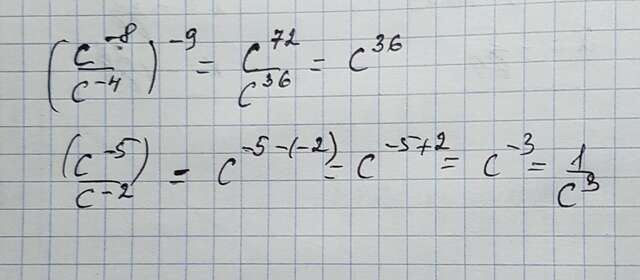 (c^-8/c^-4)^-9 = c^72/c^36 = c^36
(c^-5)/c^-2 = c^-5-(-2) = c^-5+2 = c^-3 = 1/c^3